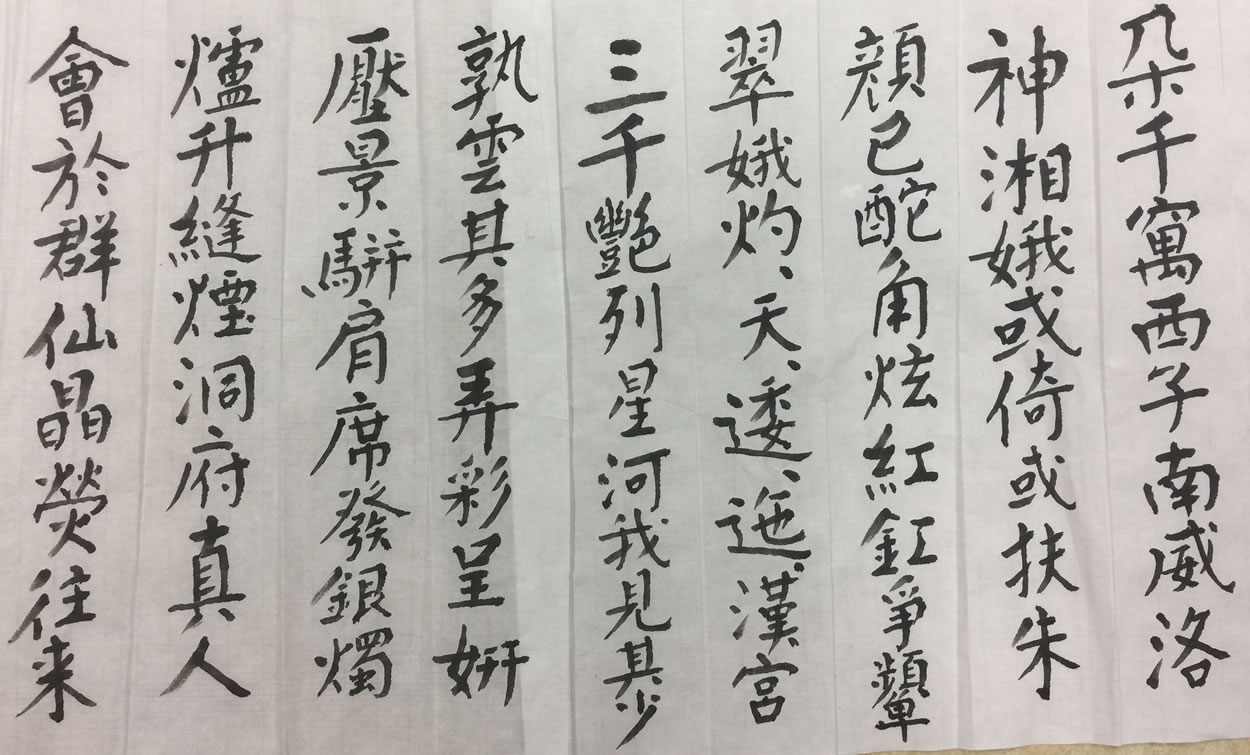 朵千寓西子南威洛
神湘娥或倚或扶朱
顏已酡角炫紅釭爭顰
翠娥灼、天、逶、迤、漢宮
三千艷列星河我見其少
孰雲其多弄彩呈妍
壓景駢肩席發銀燭
爐升縫煙洞府真人
會於群仙晶熒往来